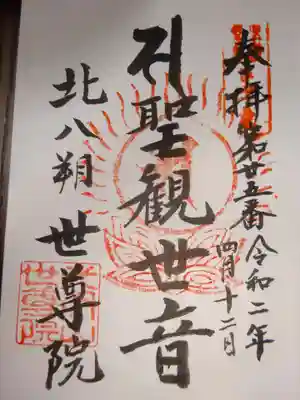 奉拝 第廿五番 令和二年
四月十二日
聖観世音
北八朔 世尊院